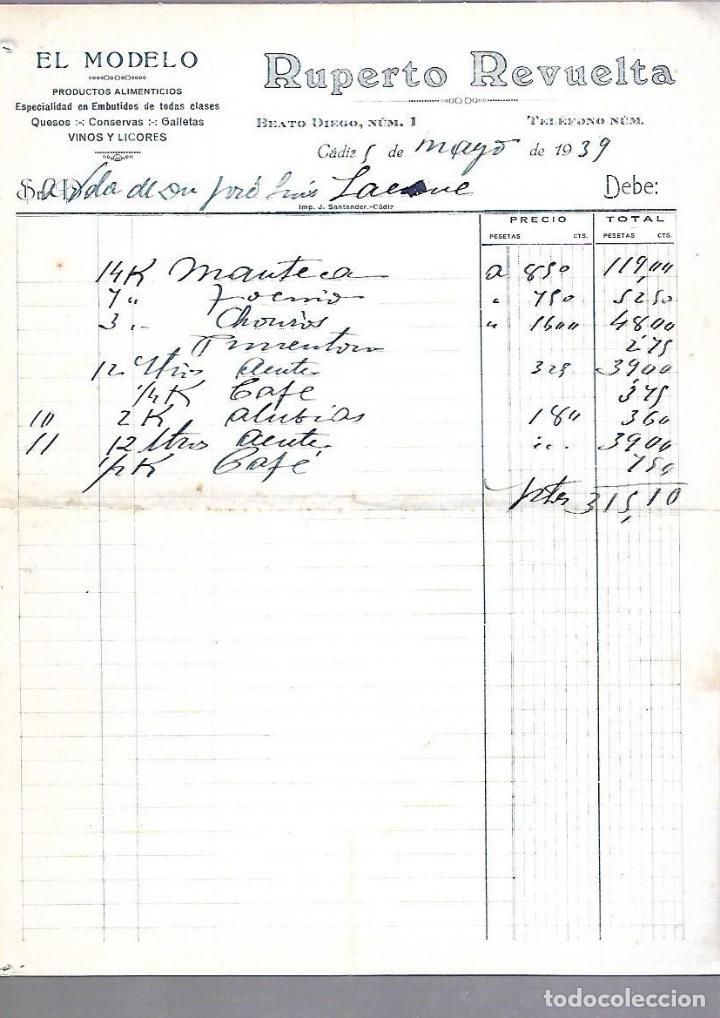 EL MODELO
PRODUCTOS ALIMENTICIOS
Especialidad en Embutidos de todas clases
Quesos :-: Conservas :-: Galletas
VINOS Y LICORES
Ruperto Revuelta
BEATO DIEGO, NÚM. 1 TELÉFONO NÚM.
Cádiz 5 de mayo de 1939
Sra Vda de Don José Luis Lacave Debe:
Imp. J. Santander.-Cádiz
PRECIO TOTAL
PESETAS CTS. PESETAS CTS.
14 K Manteca a 850 119,00
7 " Tocino " 750 5250
3 " Chorizos " 1600 4800
Pimenton 2'75
12 ltros Aceite 325 3900
1/4 K Café 375
10 2 K alubias 180 360
11 12 ltros Aceite " . 3900
1/2 K Café 750
ptas 315,10
todocoleccion